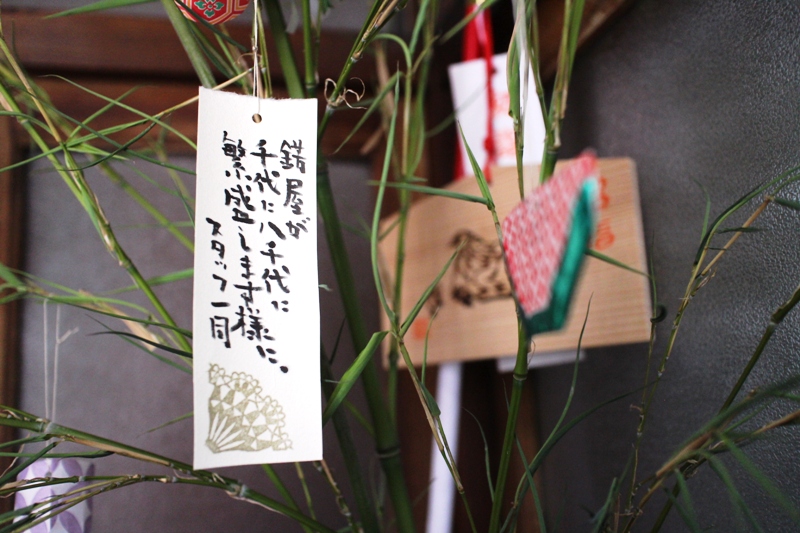 錯屋が
千代に八千代に
繁盛します様に。
スタッフ一同